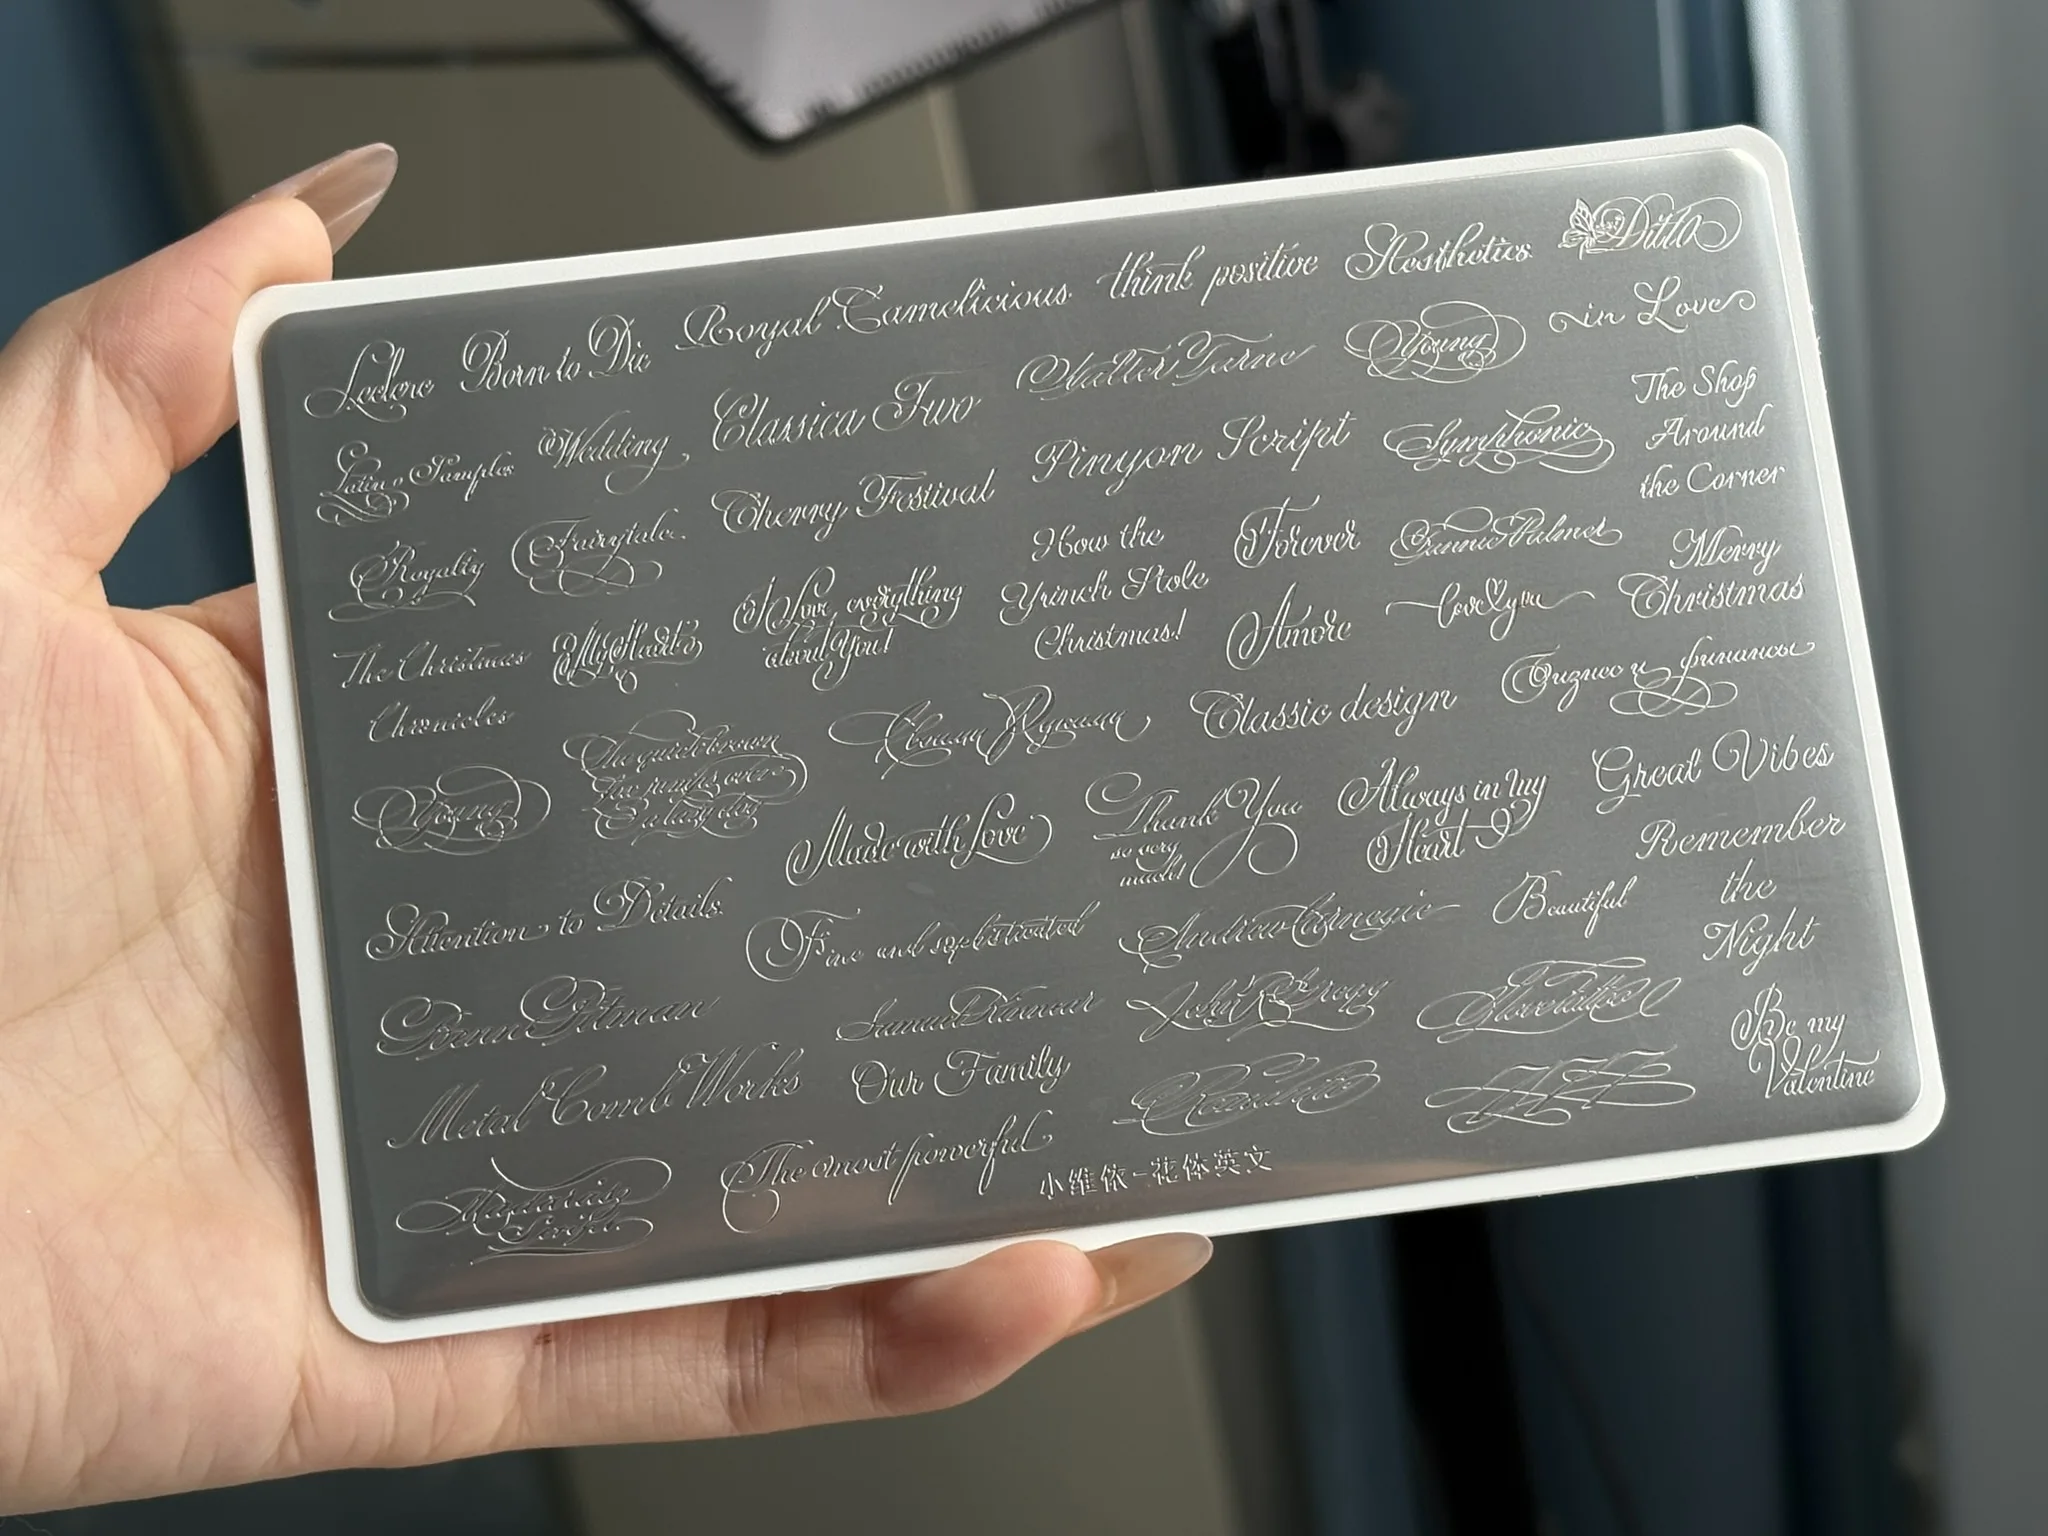 Leclerc
Born to Die
Royal Camelicious
think positive
Aesthetics
Ditto
Latin Samples
Wedding
Classica Two
Walter Turne
Young
in Love
Royalty
Fairytale
Cherry Festival
Pinyon Script
Symphonic
The Shop
Around
the Corner
The Christmas
Chronicles
My Heart
I Love everything
about You!
How the
Grinch Stole
Christmas!
Forever
Fannie Palmer
Merry
Christmas
Amore
love you
Young
The quick brown
fox jumps over
a lazy dog
Classic design
Бизнес и финансы
Made with Love
Thank You
so very
much!
Always in my
Heart
Great Vibes
Attention to Details
Fine and sophisticated
Andrew Carnegie
Beautiful
Remember
the
Night
Benn Pitman
Samuel
John R Gregg
Metal Comb Works
Our Family
Be my
Valentine
Script
The most powerful
小维依-花体英文